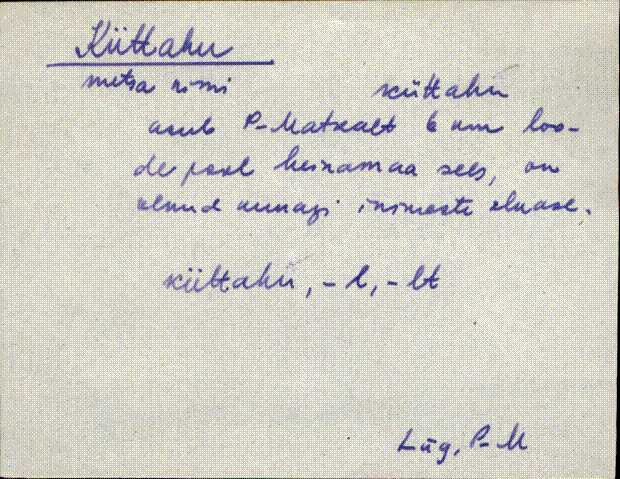 Küttahu
metsa nimi küttahu
asub P-Matsalt 6 km loo-
de pool heinamaa sees, on
olnud kunagi inimeste eluase.
küttahu, -l, -lt
Lüg, P-M